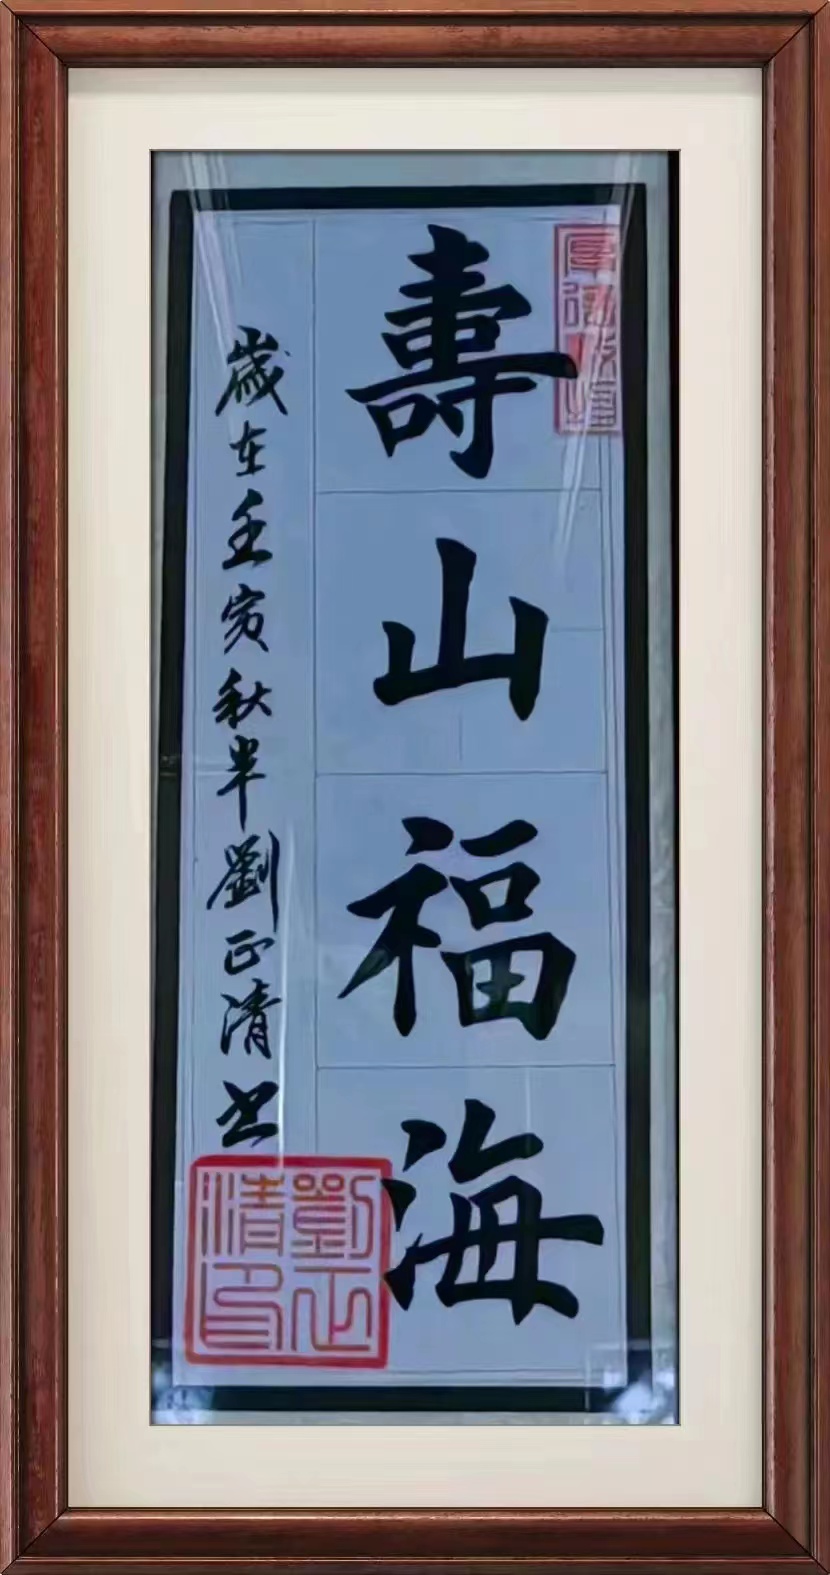 壽山福海
歲在壬寅秋半劉正清书
劉正清印